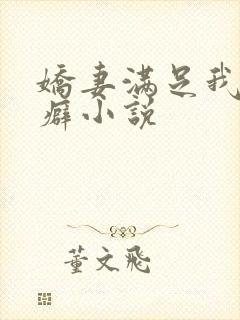 嬌妻滿足我
癖小說
董文飛